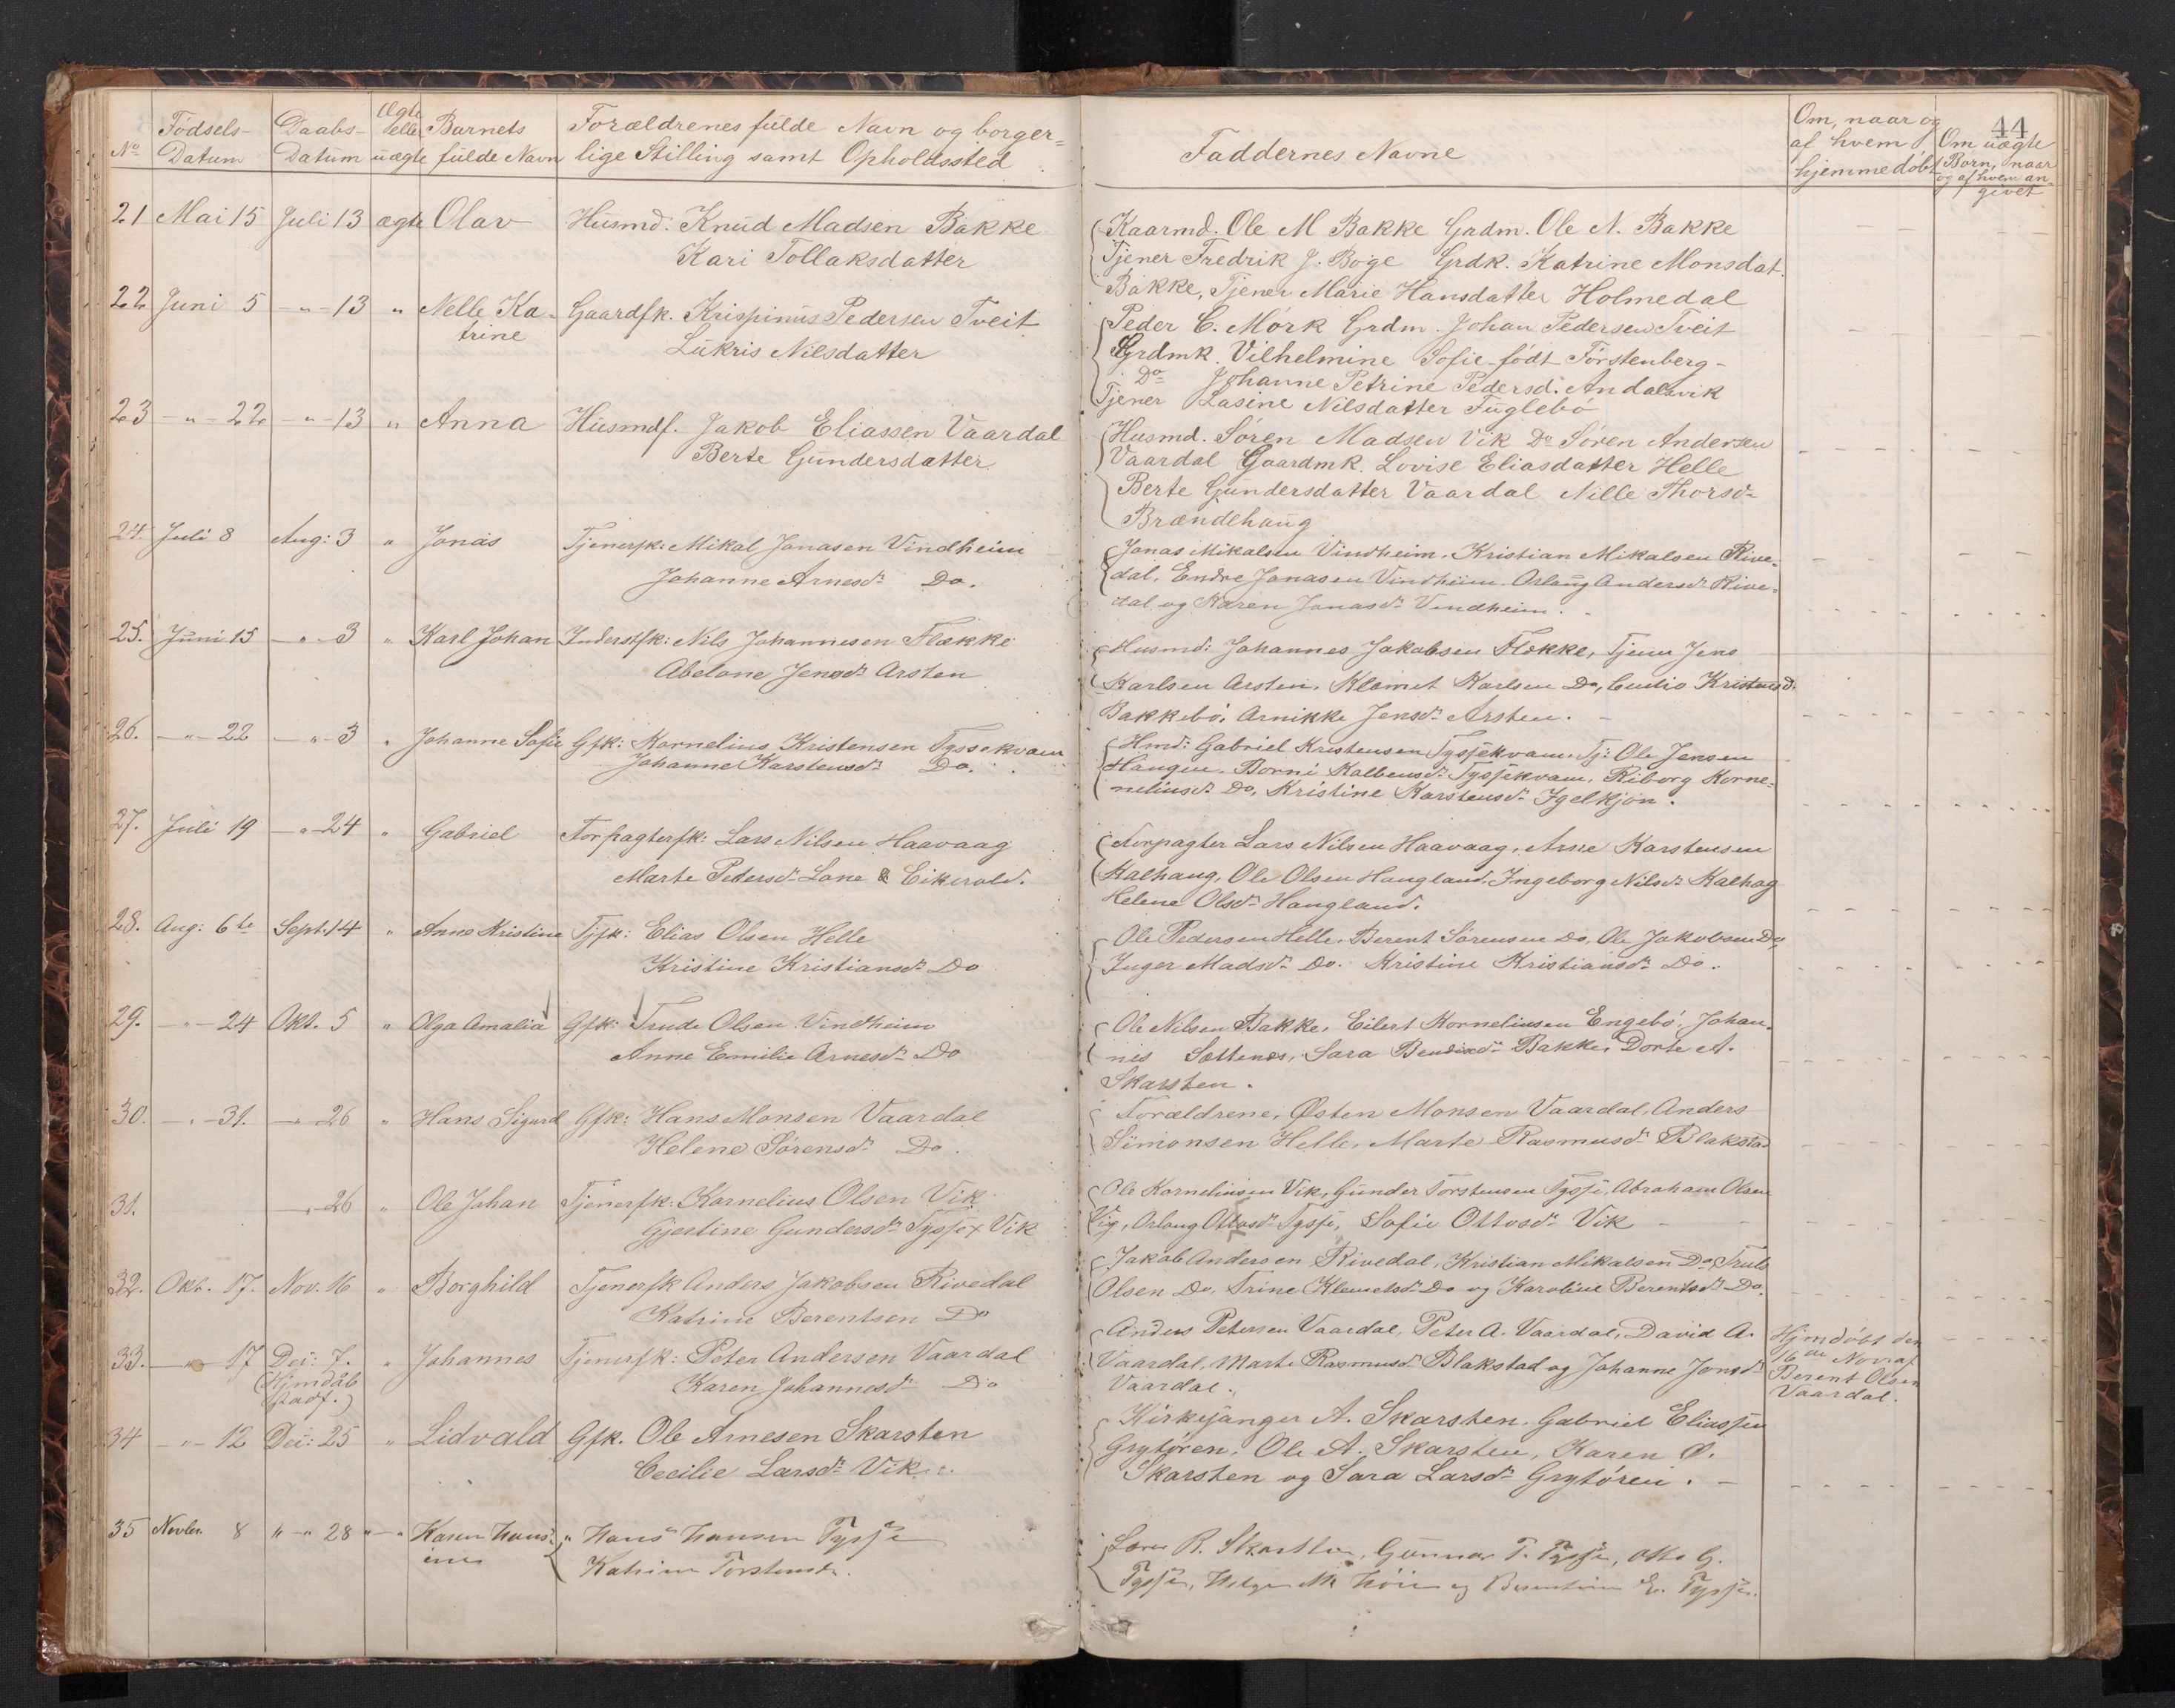 44
No Fødsels-Datum Daabs-Datum Ægte eller uægte Barnets fulde Navn Forældrenes fulde Navn og borger=
lige Stilling samt Opholdssted
Faddernes Navne
Om, naar og af hvem hjemmedøbt
Om uægte Børn, naar og af hvem an=givet
21 Mai 15 Juli 13 ægte Olav Husmd. Knud Madsen Bakke
Kari Tollaksdatter
Kaarmd. Ole M Bakke Grdm. Ole N. Bakke
Tjener Fredrik J. Boge Grdk. Katrine Monsdat.
Bakke, Tjener Marie Hansdatter Holmedal
22 Juni 5 -"-13 " Nelle Ka- Gaardfk. Krispinus Pedersen Tveit
trine Lukris Nilsdatter
Peder C. Mørk Grdm. Johan Pedersen Tveit
Grdmk. Vilhelmine Sofie født Torstenberg-
Do Johanne Petrine Pedersd. Andalsvik
Tjener Lasine Nilsdatter Fuglebø
23 -"-22 -"-13 " Anna Husmdf. Jakob Eliassen Vaardal
Berte Gundersdatter
Husmd. Søren Madsen Vik Do Søren Andersen
Vaardal Gaardmk. Lovise Eliasdatter Helle
Berte Gundersdatter Vaardal Nille Thorsd.
Brændehaug
24. Juli 8 Aug: 3 " Jonas Tjenerfk: Mikal Jonasen Vindheim
Johanne Arnesd. Do.
Jonas Mikalsen Vindheim, Kristian Mikalsen Rive=
dal, Endre Jonasen Vindheim. Orlaug Andersd. Rive=
dal og Karen Jonasd. Vindheim.
25. Juni 15 -"-3 " Karl Johan Inderstfk: Nils Johannesen Flekke
Abelone Jensd. Arsten
Husmd: Johannes Jakobsen Flekke, Tjener Jens
Karlsen Arsten, Klemet Karlsen Do, Kristensd.
Bakkebø, Arnikke Jensd. Arsten.
26. -"-22 -"-3 " Johanne Sofie Gfk: Kornelius Kristensen Tyssekvam
Johanne Karstensd. Do.
Hmd: Gabriel Kristensen Tyssekvam, Tj: Ole Jensen
Haugen, Borni Kalbensd. Tyssekvam, Riborg Korne=
neliusd. Do, Kristine Karstensd. Igelkjøn.
27. Juli 19 -"-24 " Gabriel Forpagterfk: Lars Nilsen Haavaag
Marte Pedersd. Lone & Eikevold.
Forpagter Lars Nilsen Haavaag, Arne Karstensen
Kalhaug, Ole Olsen Haugland, Ingeborg Nilsd. Kalhag
Helene Olsd. Haugland.
28. Aug: 6te Sept. 14 " Anne Kristine Tjfk: Elias Olsen Helle
Kristine Kristiansd. Do
Ole Pedersen Helle, Berent Sørensen Do, Ole Jakobsen Do,
Inger Madsd. Do. Kristine Kristiansd. Do.
29. -"-24 Okt. 5 " Olga Amalia Gfk: Trude Olsen Vindheim
Anne Emilie Arnesd. Do
Ole Nilsen Bakke, Eilert Korneliusen Engebø, Johan=
nes Sættenes, Sara Bendixd. Bakke, Dorte A.
Skarsten.
30. -"-31. -"-26 " Hans Sigurd Gfk: Hans Monsen Vaardal
Helene Sørensd. Do.
Forældrene, Østen Monsen Vaardal, Anders
Simonsen Helle, Marte Rasmusd. Blakstad
31. -"-26 " Ole Johan Tjenerfk: Kornelius Olsen Vik
Gjertine Gundersd. Tysse x Vik
Ole Korneliusen Vik, Gunder Torstensen Tysse, Abraham Olsen
Vig, Orlaug Ottosd. Tysse, Sofie Ottosd. Vik
32. Okt. 17. Nov. 16 " Borghild Tjenerfk Anders Jakobsen Rivedal
Katrine Berentsen Do
Jakob Andersen Rivedal, Kristian Mikalsen Do, Truls
Olsen Do, Trine Klemetsd. Do og Karoline Berentsd. Do.
33. -"-17 Dec: 7. " Johannes Tjenerfk: Peter Andersen Vaardal
(Hjmdåb stadf.) Karen Johannesd. Do
Anders Petersen Vaardal, Peter A. Vaardal, David A.
Vaardal, Marte Rasmusd. Blakstad og Johanne Jonsd.
Vaardal.
Hjmdøbt den
16de Nov. af
Berent Olsen
Vaardal.
34 -"-12 Dec: 25 " Lidvald Gfk. Ole Arnesen Skarsten
Cecilie Larsd. Vik
Kirkesanger A. Skarsten, Gabriel Eliassen
Grytøren, Ole A. Skarsten, Karen O.
Skarsten og Sara Larsd. Grytøren.
35 Novbr. 8 "-"28 "-" Karen Hans- " Hans Hansen Tysse
ine Katrine Torstensd.
R. Skarsten, Gunnar T. Tysse, Otto G.
Tysse, Helge M Høie og Berentine E. Tysse.